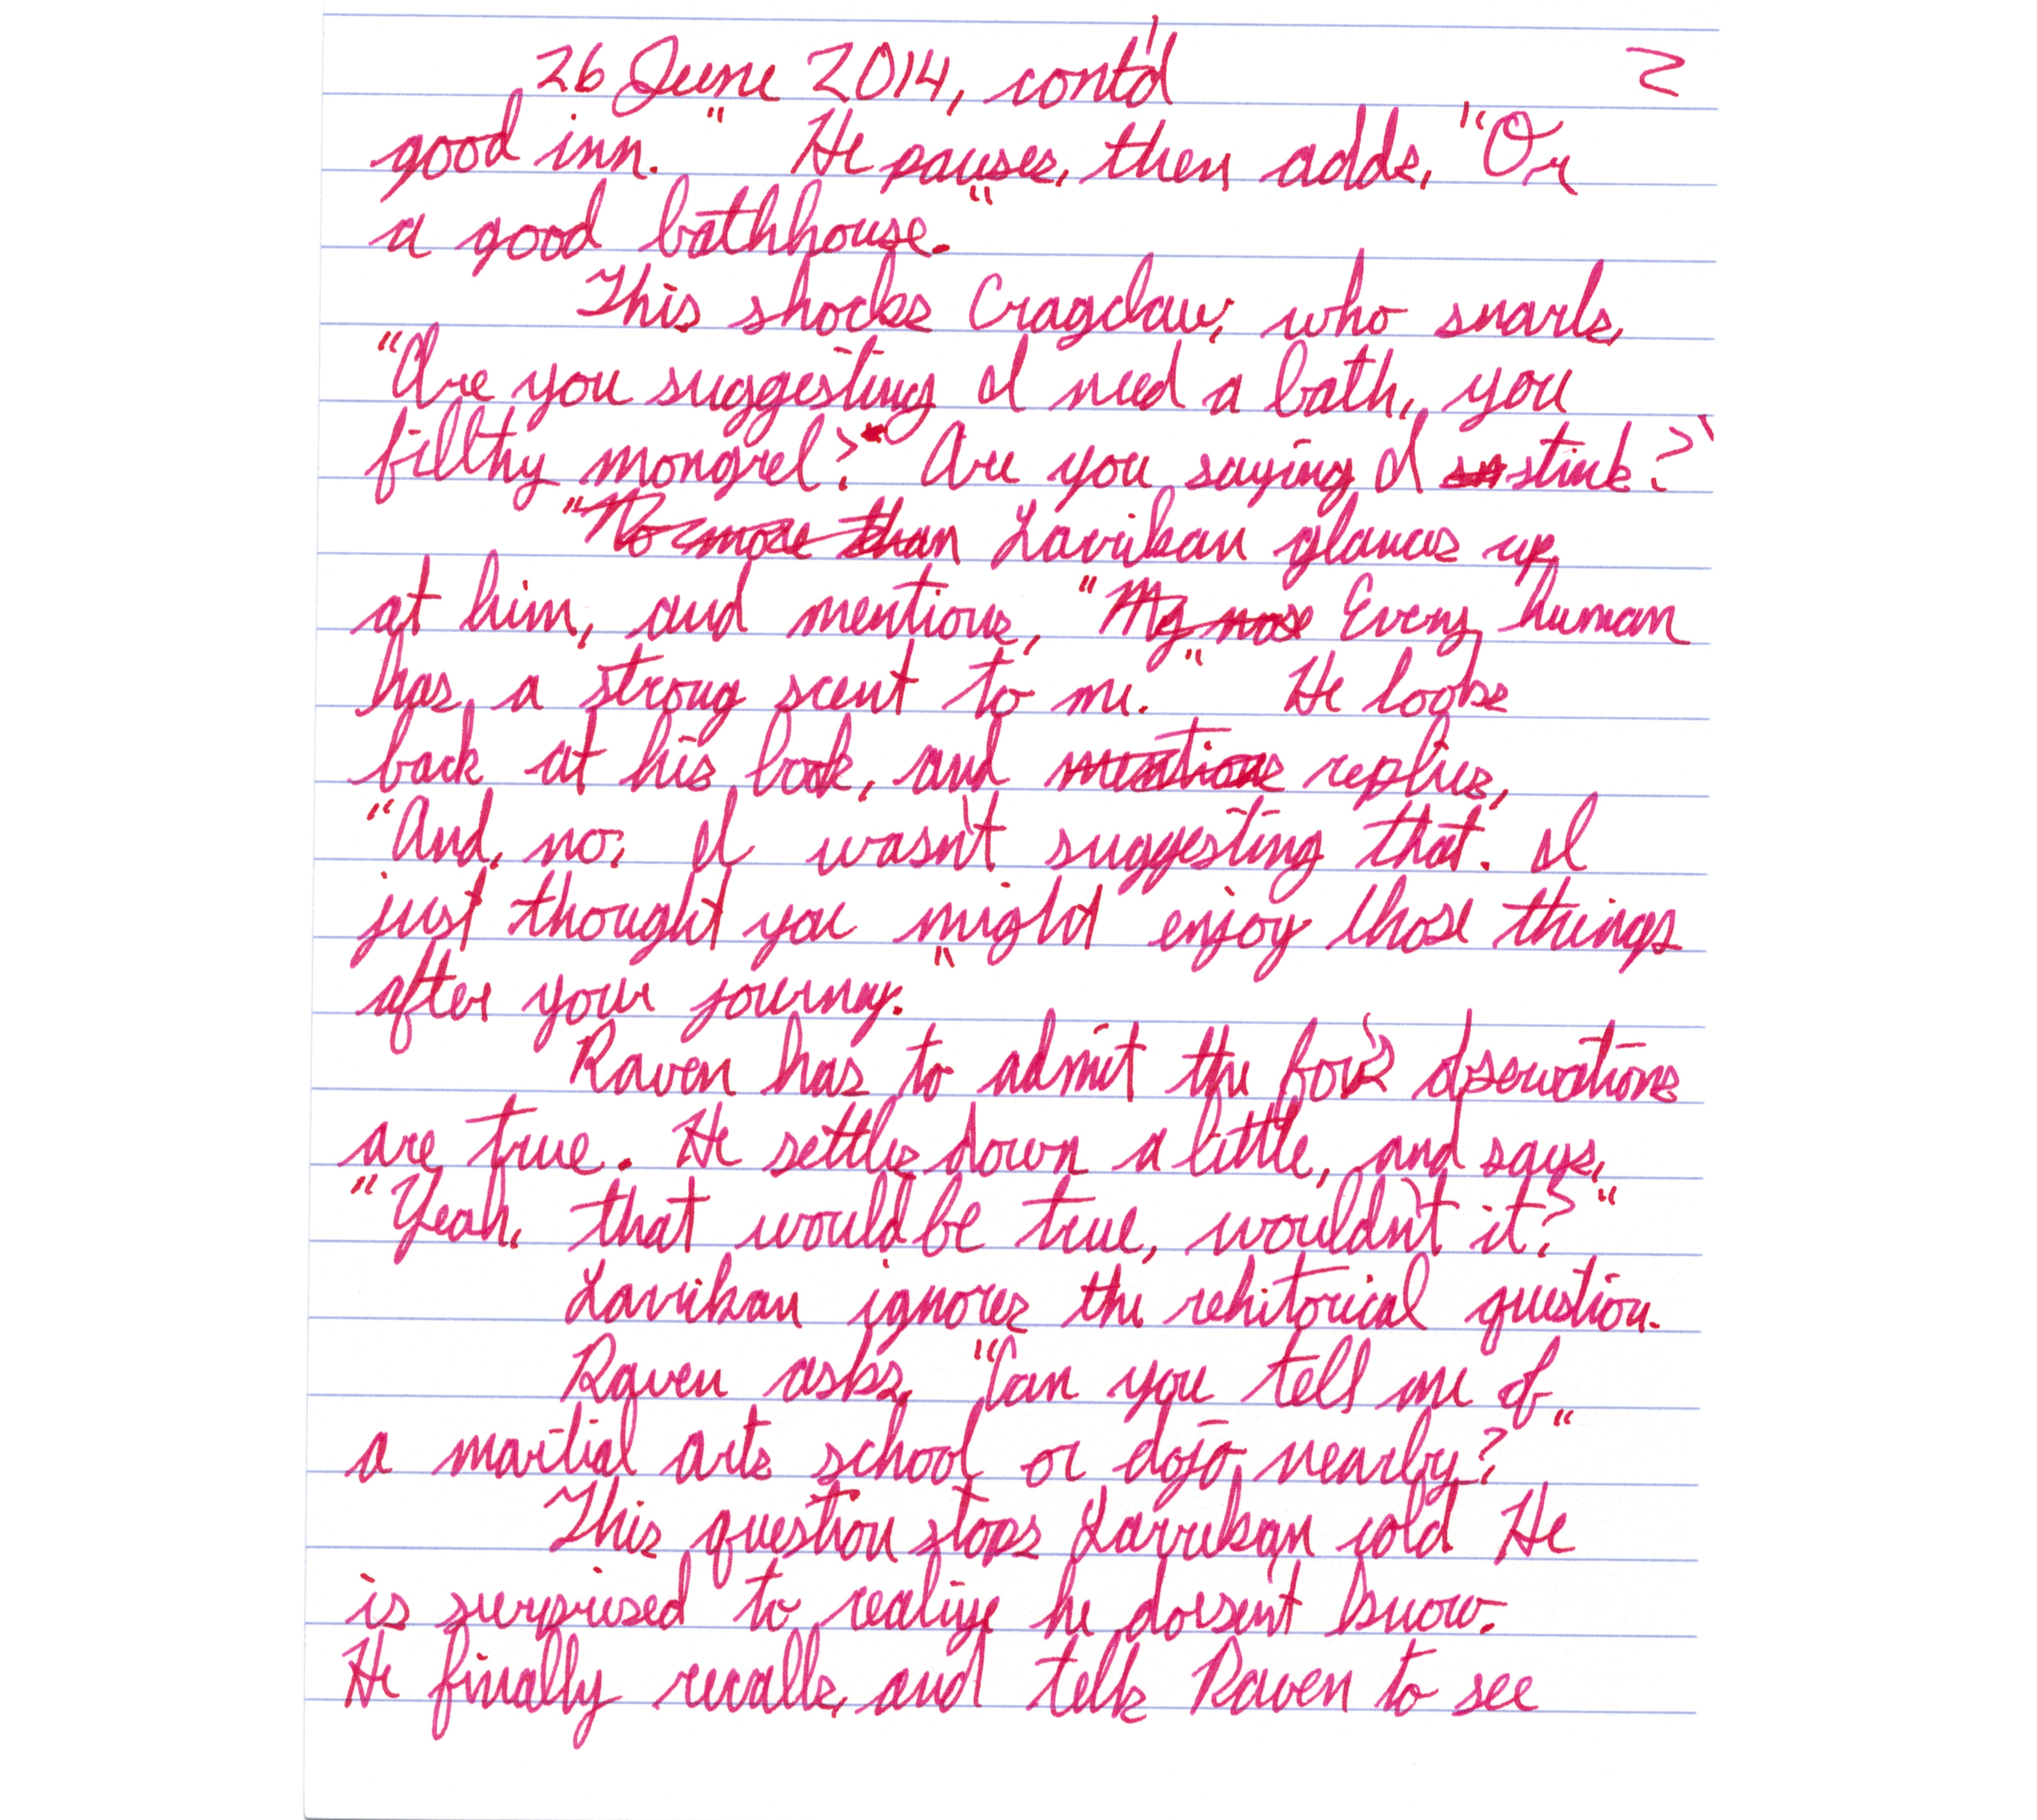 26 June 2014, cont'd 2
good inn." He pauses, then adds, "Or
a good bathhouse."
This shocks Cragclaw, who snarls,
"Are you suggesting I need a bath, you
filthy mongrel? Are you saying I sn stink?"
"No more than Lavikan glances up
at him, and mentions, "My nose Every human
has a strong scent to me." He looks
back at his book, and mentions replies,
"And, no, I wasn't suggesting that. I
just thought you might enjoy those things
after your journey."
Raven has to admit the fox's observations
are true. He settles down a little, and says,
"Yeah, that would be true, wouldn't it?"
Lavikan ignores the rehitorical question.
Raven asks, "Can you tell me of
a martial arts school or dojo nearby?"
This question stops Lavikan cold. He
is surprised to realize he doesn't know.
He finally recalls, and tells Raven to see